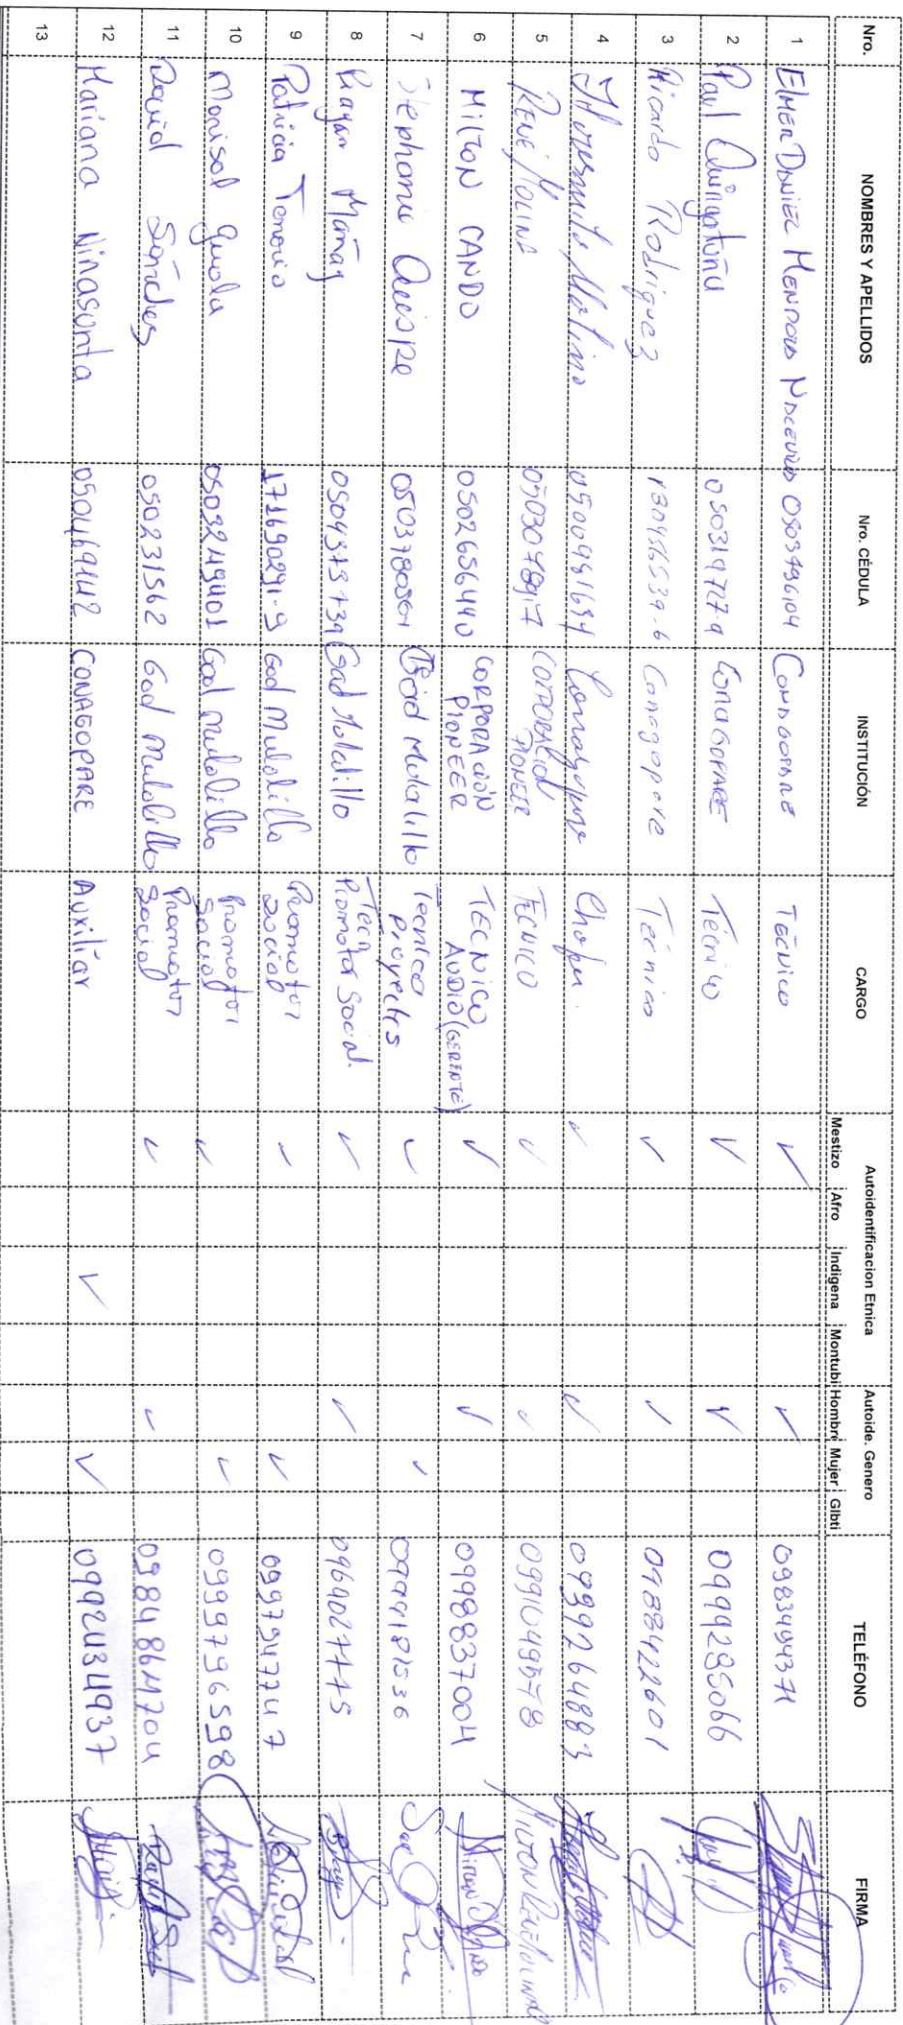 Nro. NOMBRES Y APELLIDOS Nro. CÉDULA INSTITUCIÓN CARGO Autoidentificacion Etnica Autoide. Genero TELÉFONO FIRMA
Mestizo Afro Indigena Montubi Hombre Mujer Glbti
1 ELMER DANIEL MENDOZA 0503796104 CONAGOPARE TÉCNICO ✓ ✓ 0983494371
2 Paul Quingatuña 0503197279 CONAGOPARE Técnico ✓ ✓ 0999285066
3 Ricardo Rodriguez 130416539-6 Conagopare Técnico ✓ ✓ 0988422601
4 Molina Conagopare Chofer. ✓ ✓ 0999264883
5 RENE MOLINA 0503078917 CORPORACION PIONEER TECNICO ✓ ✓ 0991049578
6 MILTON CANDO 0502656440 CORPORACIÓN PIONEER TECNICO AUDIO (GERENTE) ✓ ✓ 0998837004
7 Stephanie Quispe Gad Mulalillo Tecnica Proyectos ✓ ✓
8 Gad Mulalillo Tec. Promotor Social. ✓ ✓
9 Patricia Tenorio 171690291-9 Gad Mulalillo Promotor Social ✓ ✓ 0997947747
10 Marisol Guala 0503249401 Gad Mulalillo Promotor Social ✓ ✓ 0999796598
11 David 050231562 Gad Mulalillo Promotor Social ✓ ✓ 0984861704
12 Mariana Ninasunta 0504169142 CONAGOPARE Auxiliar ✓ ✓ 0992434937
13